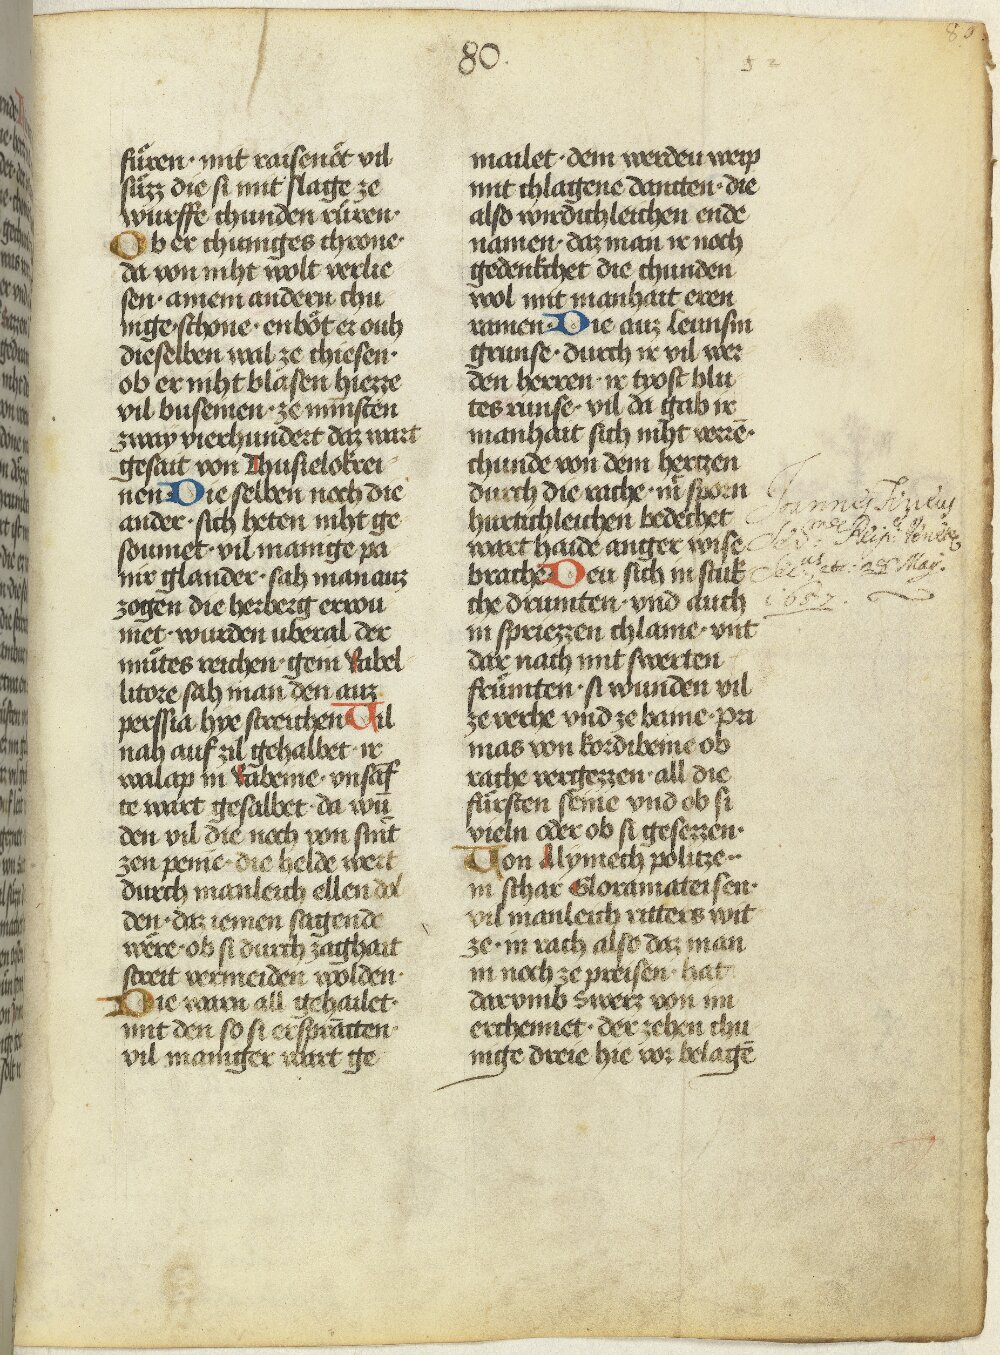 80.
füren · mit raisenöt vil
süzz die si mit slage ze
wurffe chunden rüren·
Ob er chuniges chrone·
da von niht wolt verlie
sen· a inem andern chu
nige· schone· enböt er ouh
dieselben wal ze chiesen·
ob er niht blasen hiezze
vil busemen· ze minsten
zway vierhundert daz wart
gesait von Thusielokrei
nen Die selben noch die
ander· sich heten niht ge
soumet· vil manige pa
nir glander· sah man auz
zogen die herberg erwu
met· wurden uberal der
mütes reichen· gein kabel
litore sah man den auz
perssia hye streichen Vil
nah auf zil gehalbet· ir
walap in rabeine· vnsäf
te wart gesalbet· da wu̅
den vil die noch von smit
zen peine· die helde wert
durch manleich ellen dol
den· daz iemen sagende
wére· ob si durch zaghait
streit vermeiden wolden·
Die warn all gehailet·
mit den so si ersprancten·
vil maniger wart ge
mailet· dem werden weip
mit chlagene dancten· die
also wirdichleichen ende
namen· daz man ir noch
gedenkchet die chunden
wol mit manhait eren
ramen· Die auz leunsin
grunse· durch ir vil wer
den herren· ir trost blu
tes runse· vil da gab ir
manhait sich niht verre̅·
chunde von dem hertzen
durch die rache· mi̅ sporn
hurtichleichen bedechet
wart haide anger wise
brache Deu sich in stuk
che drumten· vnd auch
in spriezzen chlaine· vnt
dar nach mit swerten
frümten· si wunden vil
ze verhe vnd ze baine· Pri
mas von kordibeine ob
rache vergezzen· all die
fürsten seine vnd ob si
vieln oder ob si gesezzen·
Von Alymech politze··
in schar Gloramateisen·
vil manleich ritters wit
ze· in rach also daz man
in noch ze preisen· hat
darvmb swerz von im
erchennet· der zehen chu
nige dreie hie vor belage̅
Joannes
May.
1652.